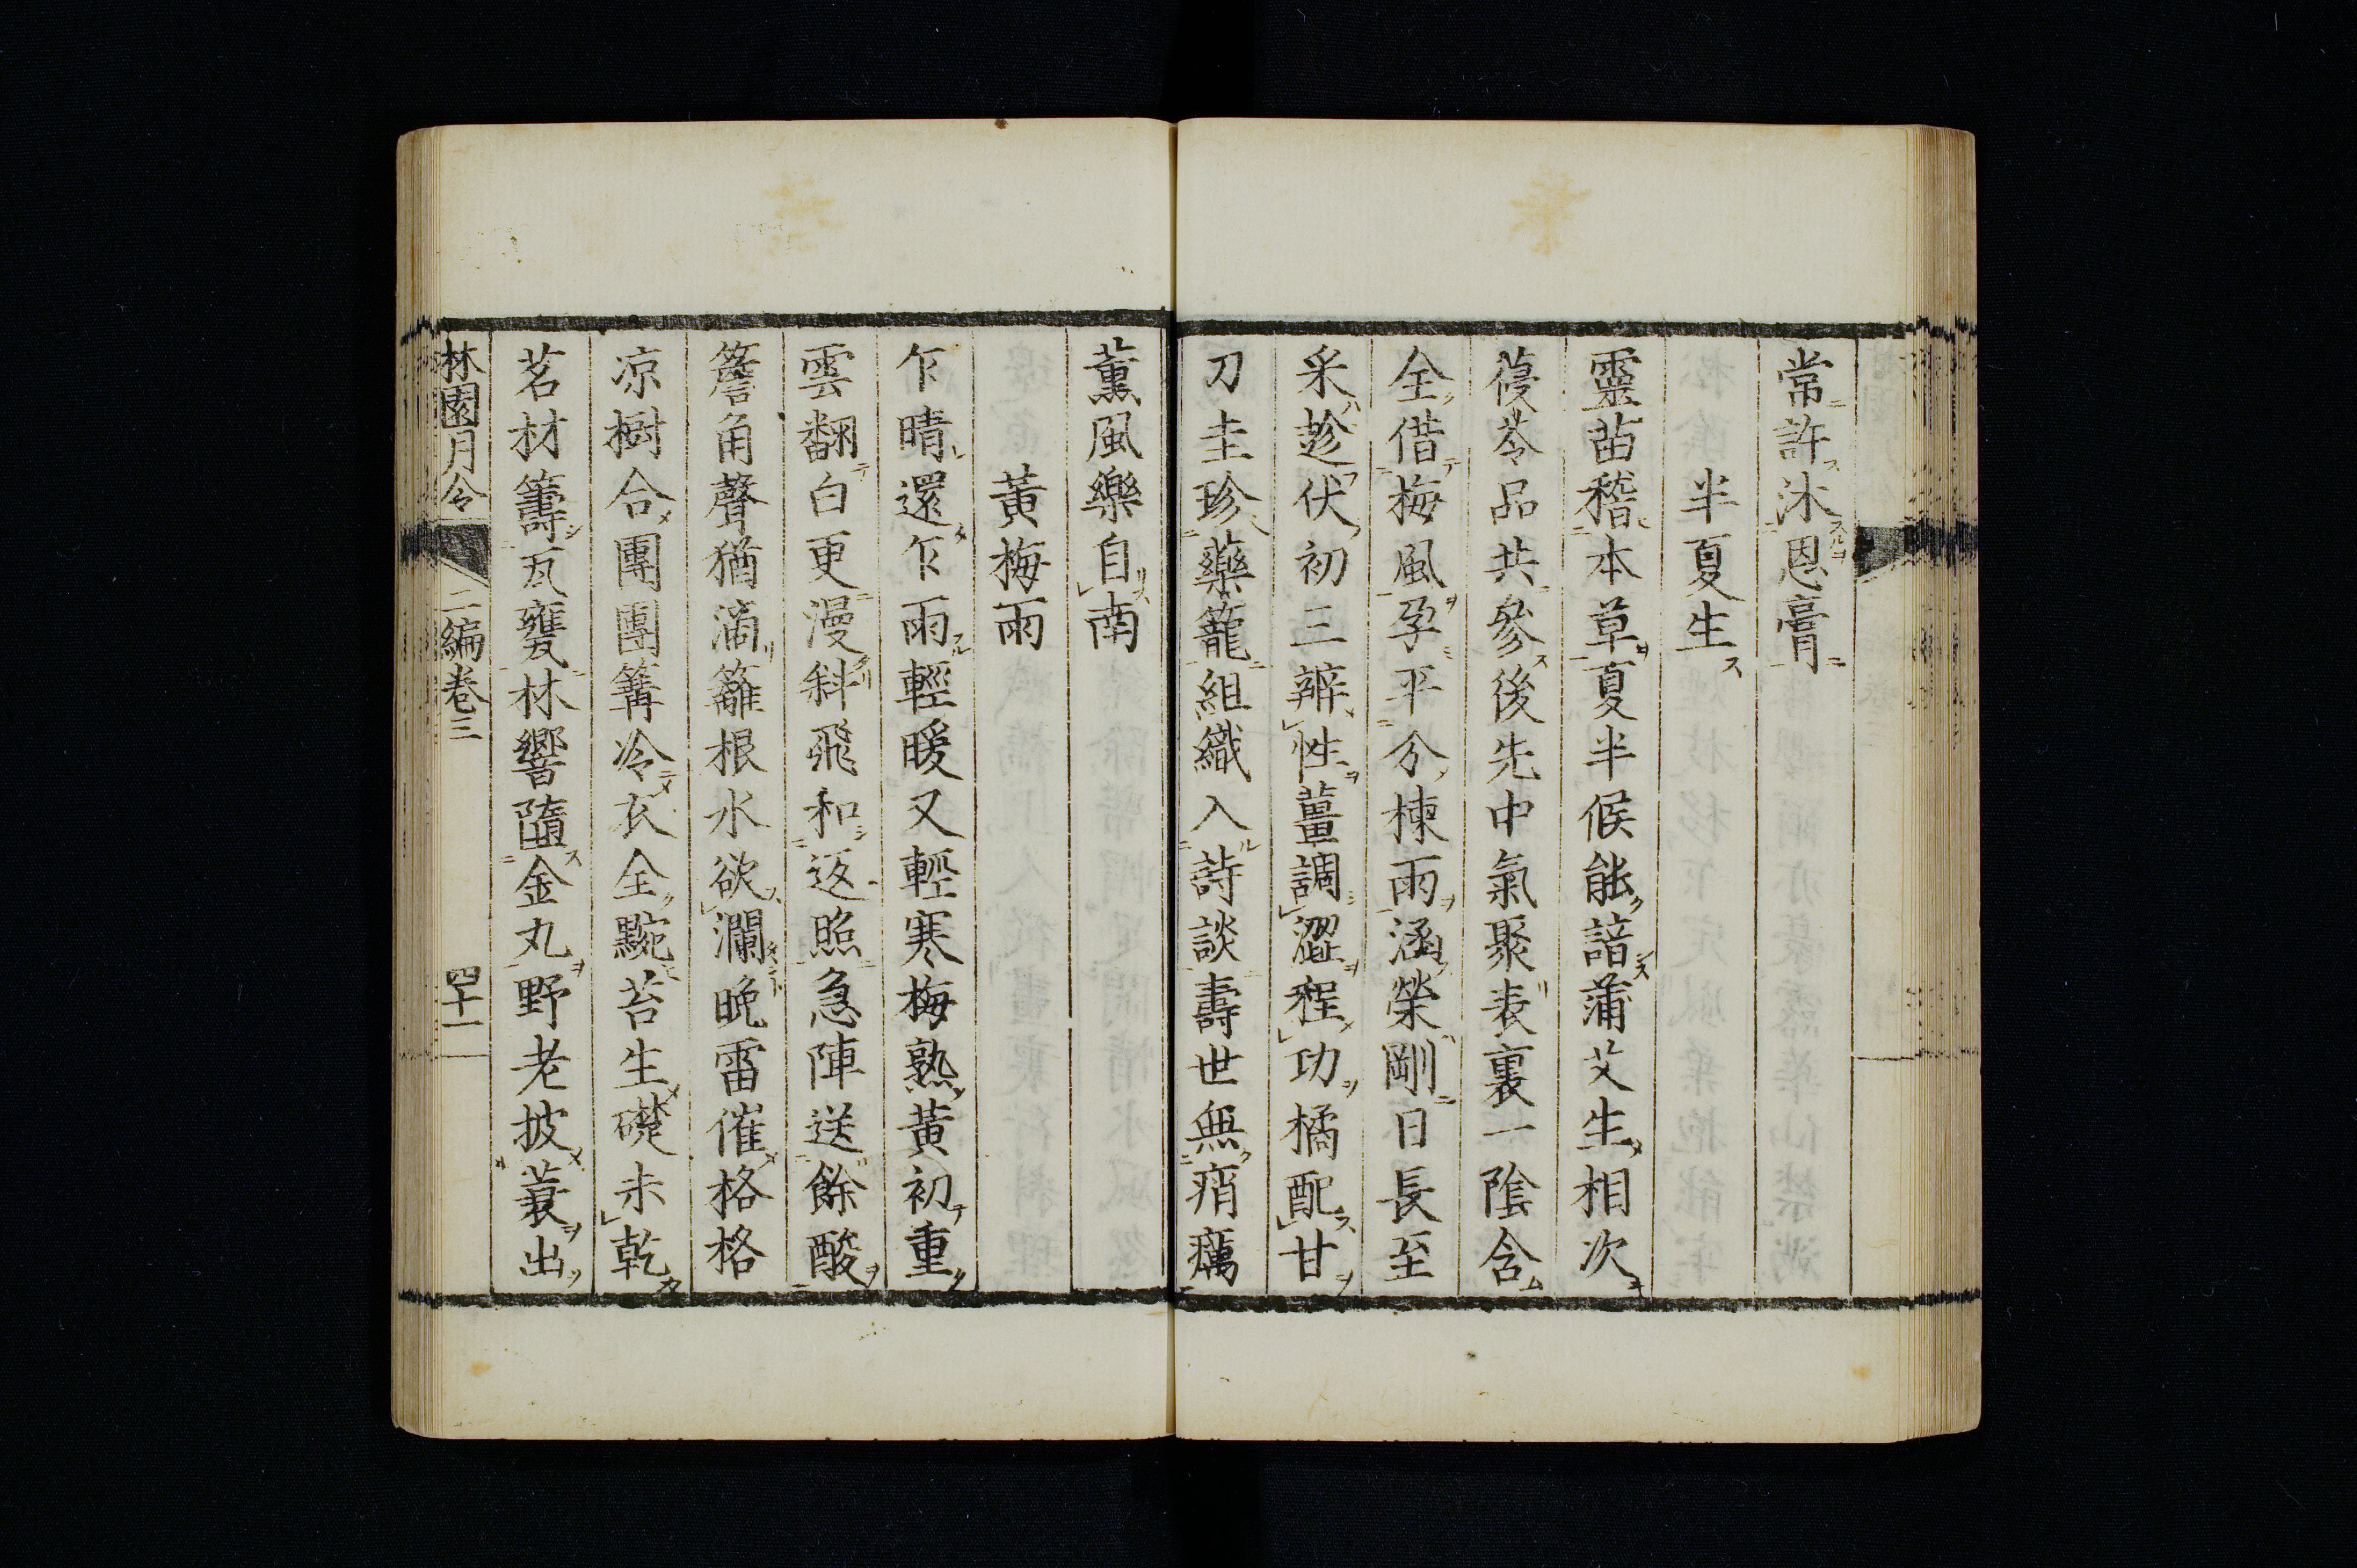 常許沐恩膏
半夏生
靈苗稽本草夏半候能諳蒲艾生相次
葠苓品共參後先中氣聚表裏一陰含
全借梅風孕平分楝雨涵榮剛日長至
采趁伏初三辨性薑調澀程功橘配甘
刀圭珍藥籠組織入詩談壽世無痟癘
薰風樂自南
黃梅雨
乍晴還乍雨輕暖又輕寒梅熟黃初重
雲翻白更漫斜飛和返照急陣送餘酸
簷角聲猶滴籬根水欲瀾晚雷催格格
凉樹合團團篝冷衣全黦苔生礎未乾
茗材籌瓦甕林響隨金丸野老披蓑出
林園月令 二編卷三 四十一